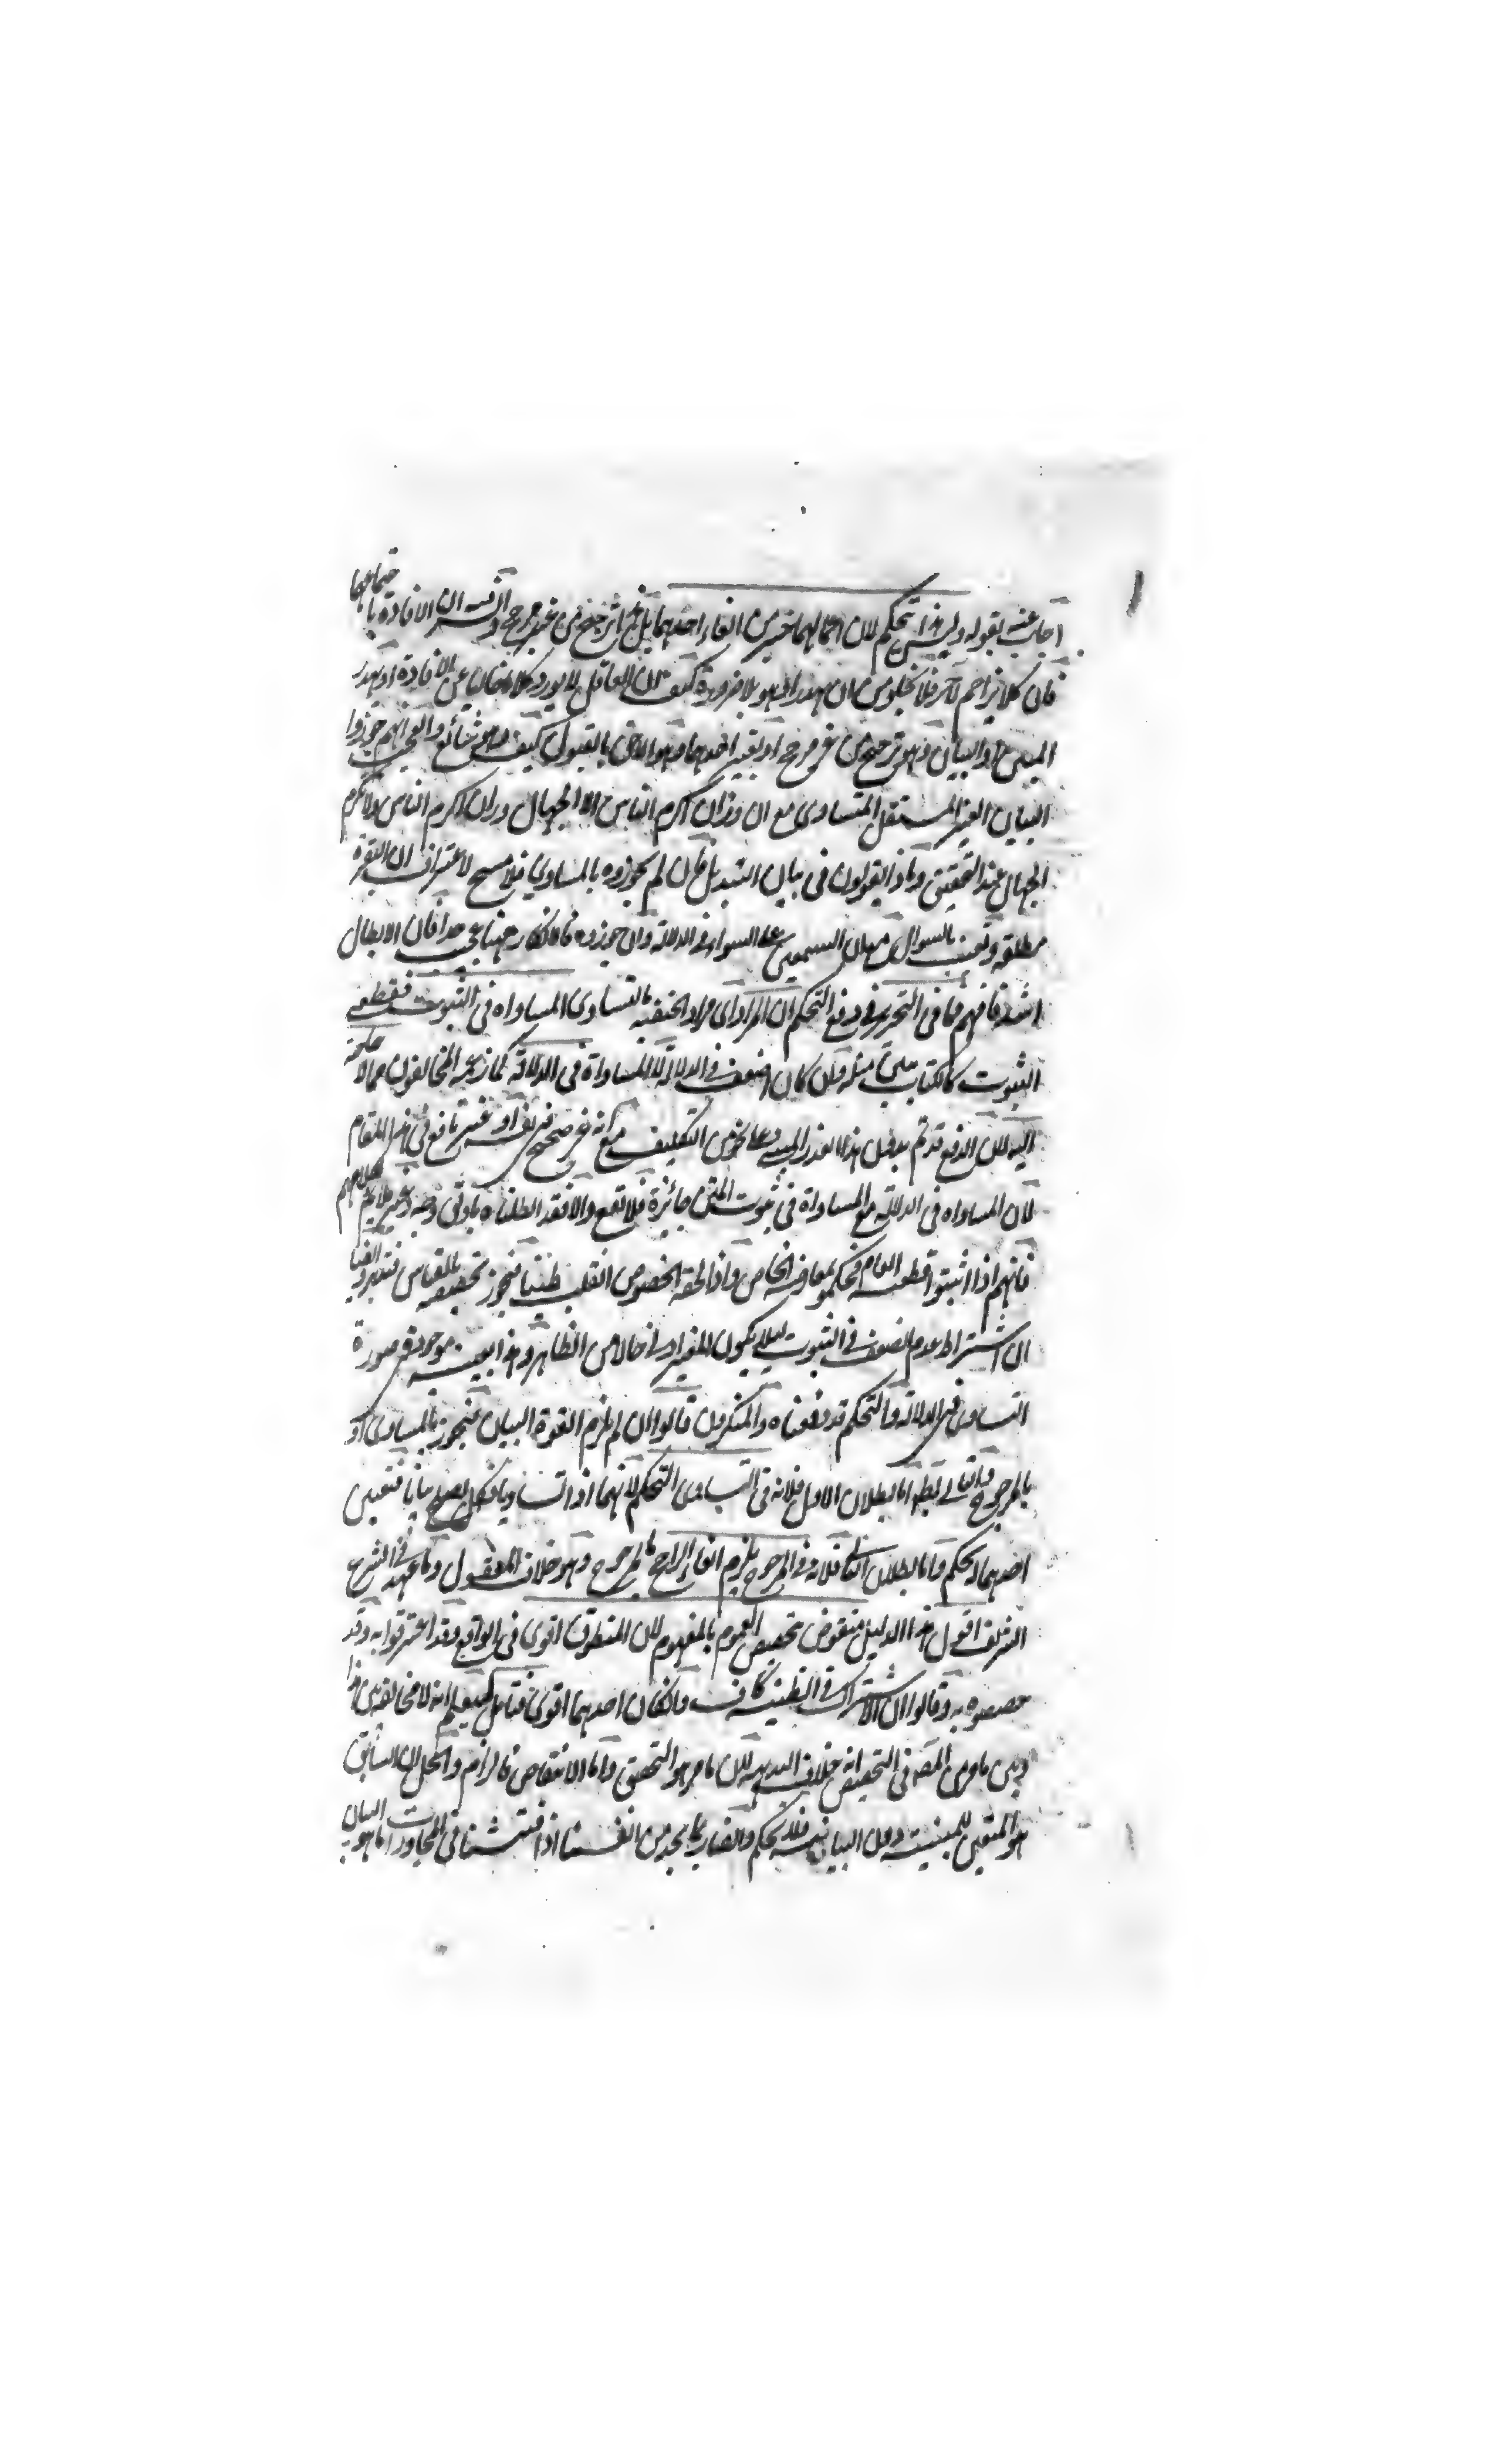 اجاب عنه بقوله وليس هذا بتحكم لان اعمالهما خير من الغاء احدهما بل ترجيح من غير مرجح والسر ان الافادة باجتماعهما
فان كلا يزاحم لآخر فلا يخلو من ان يهدرا وهو بلا ضرورة كيف ان العاقل لا يورد كلاما خاليا عن الافادة او يهدر
المبين او البيان وهو ترجيح من غير مرجح او يغير احدهما وهو الاحق بالقبول كيف وهو شائع والعجب انهم جوزوا
البيان الغير المستقل المتساوي مع ان وزان اكرم الناس الا الجهال وزان اكرم الناس ولا تكرم
الجهال عند التحقيق وماذا يقولون في بيان التبديل فان لم يجوزوه بالمساوي فلا نسخ لاعتراف ان البقرة
مطلقة وتعينت بالسوال السمعين على السواء في الدلالة وان جوزوه فالانكار ههنا عجب جدا فان الابطال
اشد فافهم فما في التحرير في دفع التحكم ان المراد اي مراد الحنفية بالتساوي المساواة في الثبوت فقطعي
الثبوت كالكتاب يبين مثله وان كان اضعف في الدلالة لا المساواة في الدلالة كما زعمه المخالفون مما لا حاجة
اليه لان الدفع قد تم بدون هذا القدر التكليف مع انه غير صحيح غير نافع في هذا المقام
لان المساواة في الدلالة مع المساواة في ثبوت المتن جائزة فلا تقع والا فقد ابطلناه باوثق وجه وغير ملائم لكلامهم
فانهم اذا اثبتوا قطعية العام فحكموا بمعارضة الخاص واذا لحقه الخصوص انقلب ظنيا فيجوز تخصيصه بالقياس فتدبر وايضا
ان اشتراط عدم الضعف في الثبوت لئلا يكون المغير ادنى حالا من الظاهر وهذا بعينه موجود في صورة
التساوي في الدلالة والتحكم قد دفعناه والمنكرون قالوا ان لم يلزم القوة البيان فيجوز بالمساوي او
بالمرجوح والتالي بطل اما بطلان الاول فلانه في التساوي التحكم لانهما اذا تساويا فكل يصلح بيانا فتعيين
احدهما تحكم واما بطلان الثاني فلانه في المرجوح يلزم الغاء الراجح بالمرجوح وهو خلاف المعقول وما عهد في الشرع
الشريف اقول هذا الدليل منقوض بتخصيص العموم بالمفهوم لان المنطوق اقوى في الواقع وقد اعترفوا به وقد
خصصوه به وقالوا ان الاشتراك في الظنية كاف وان كان احدهما اقوى فتامل كيف انه لا مخالفة بين هذا
وبين ما مر من المص في التخصيص انه خلاف البديهة لان ما مر هو التحقيق واما الانتقاض فالزام والحل ان السابق
هو المتعين للمبينية دون البيانية فلا تحكم وايضا ربما نجد من انفسنا اذا فتشنا في المحاورات ما هو البيان